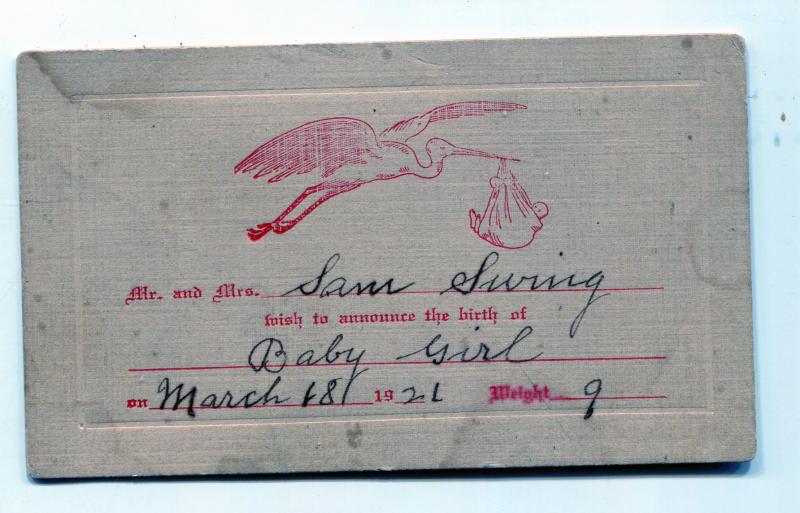 Mr. and Mrs. Sam Swing
wish to announce the birth of
Baby Girl
on March 18 1921 Weight 9